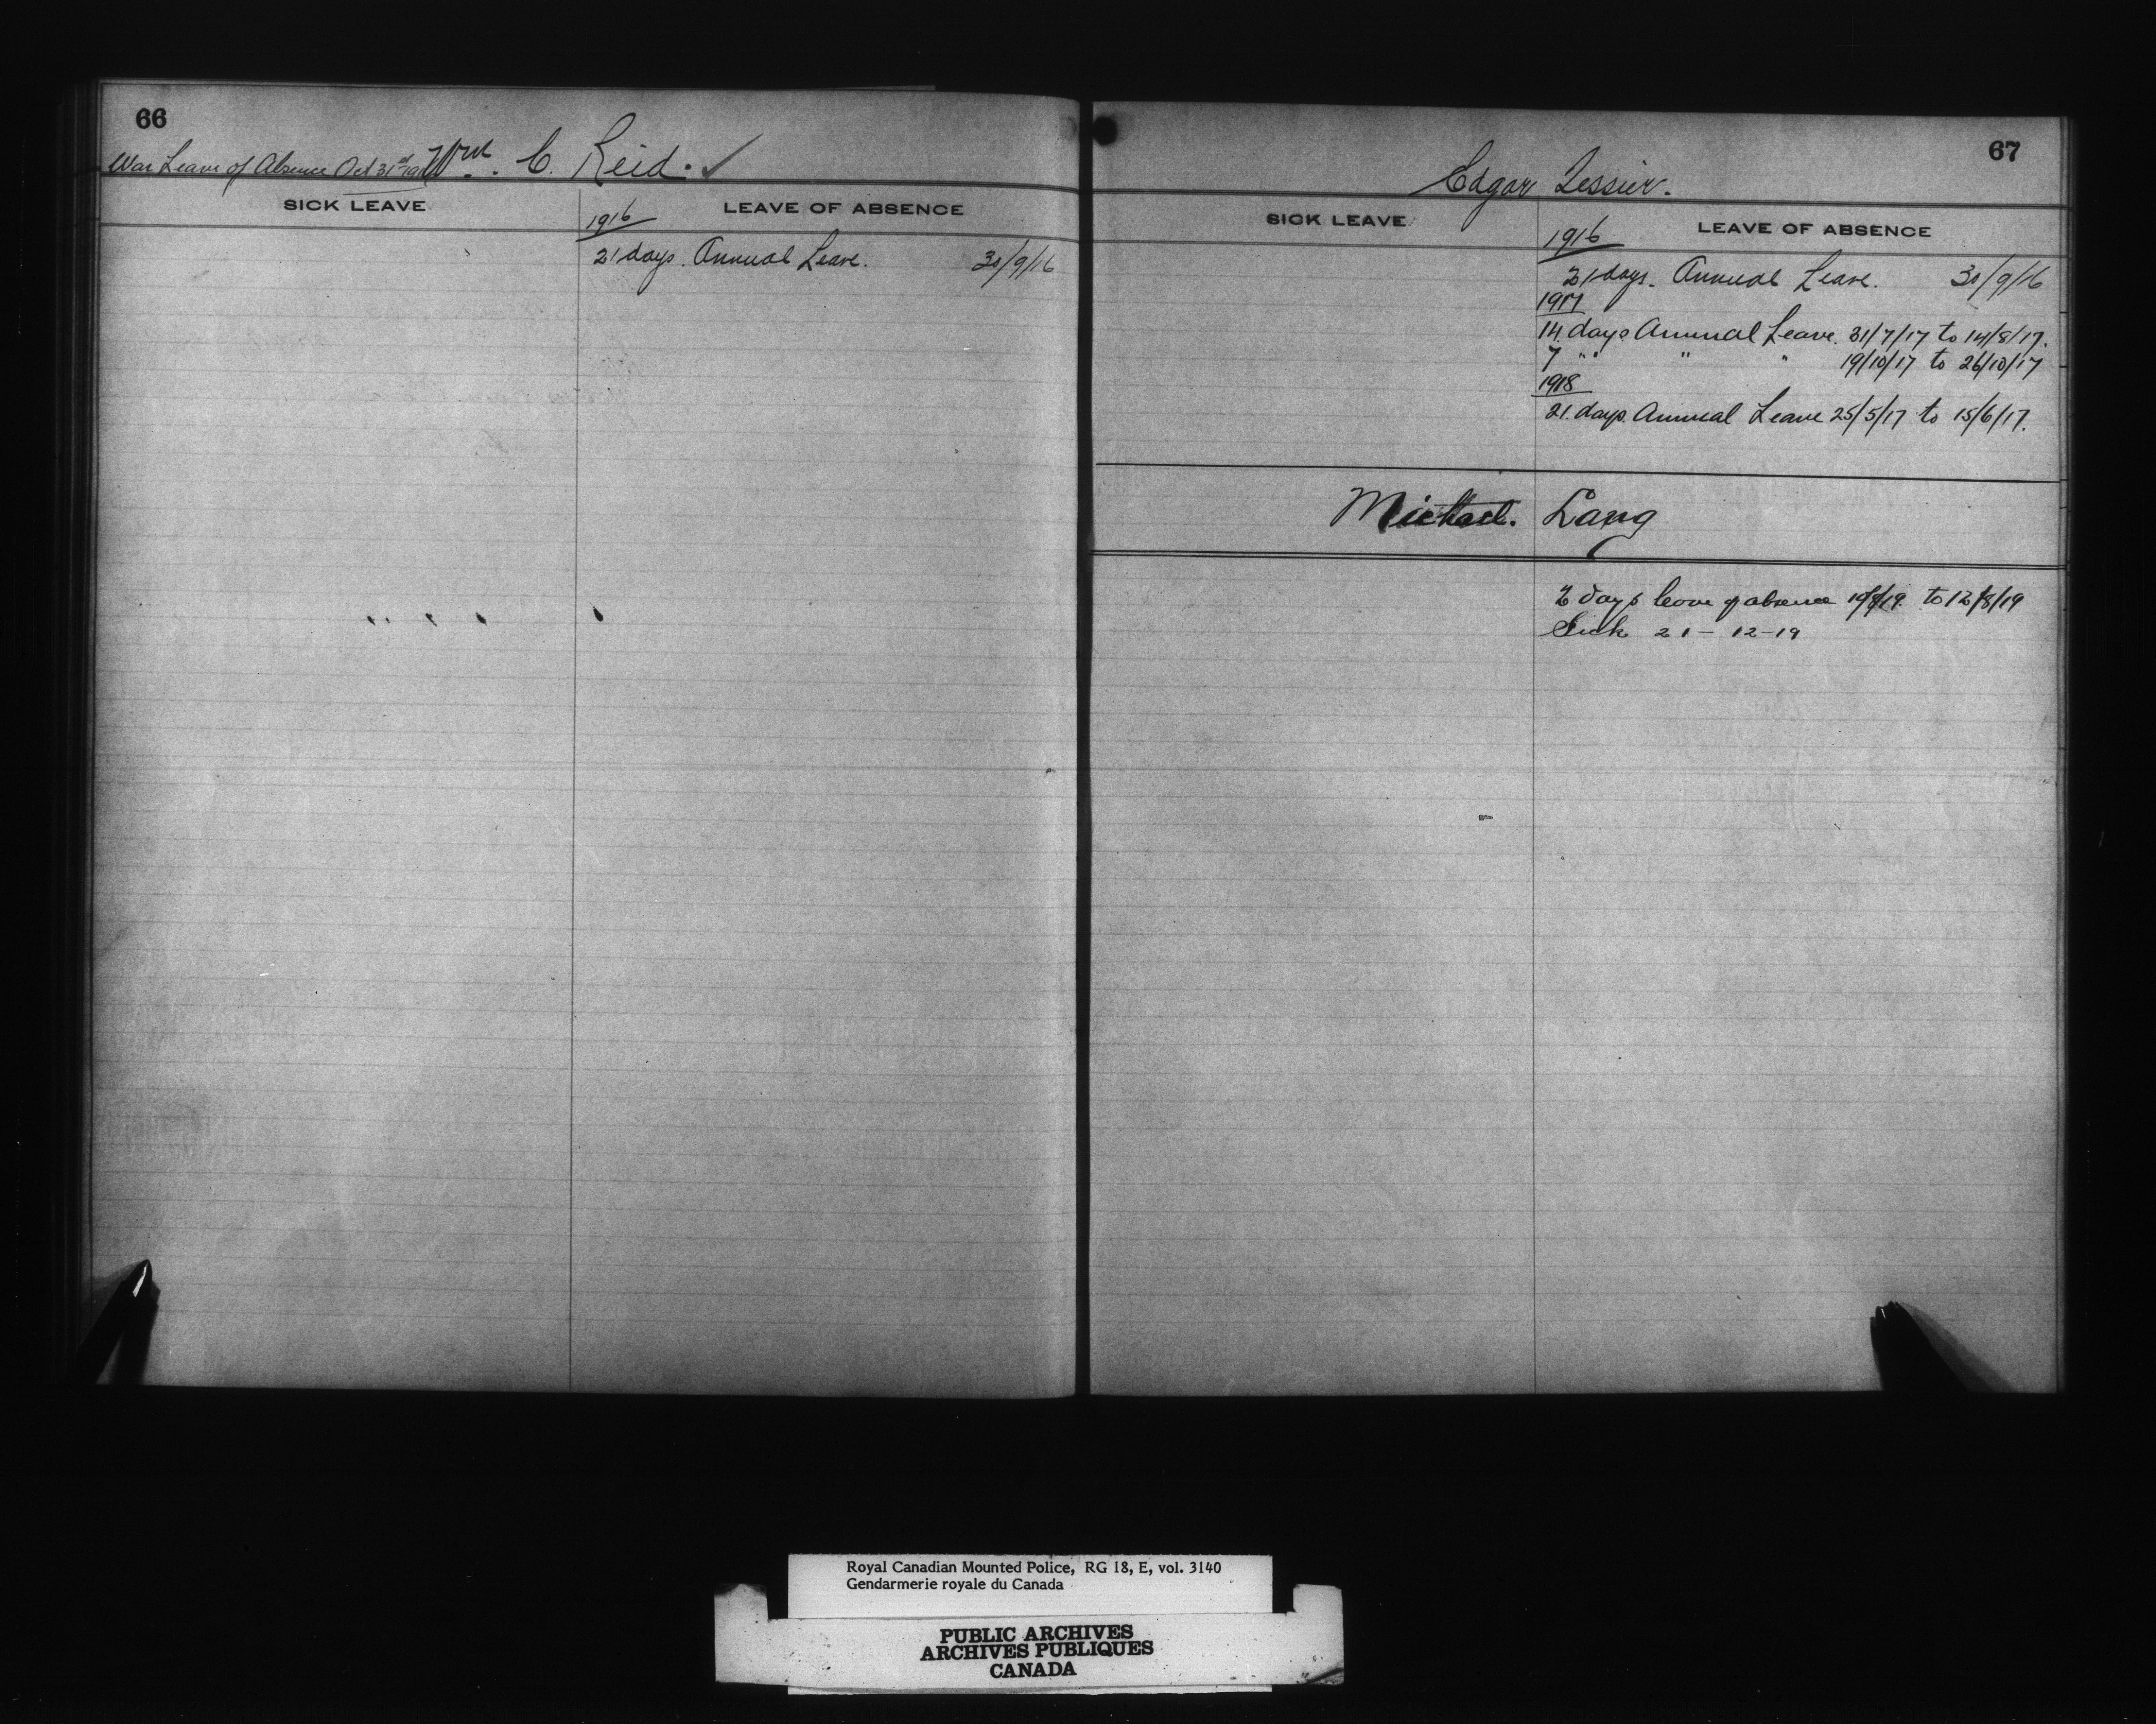 66
War Leave of Absence Oct 31st Wm. C. Reid.
SICK LEAVE
LEAVE OF ABSENCE
1916
21 days. Annual Leave. 30/9/16
67
Edgar Lessier.
SICK LEAVE
LEAVE OF ABSENCE
1916
21 days. Annual Leave. 30/9/16
1917
14 days Annual Leave. 31/7/17 to 14/8/17.
7 " " " 19/10/17 to 26/10/17
1918
21. days. Annual Leave 25/5/17 to 15/6/17.
Michael. Lang
2 days leave of absence to 12/8/19
Sick 21-12-19
Royal Canadian Mounted Police, RG 18, E, vol. 3140
Gendarmerie royale du Canada
PUBLIC ARCHIVES
ARCHIVES PUBLIQUES
CANADA